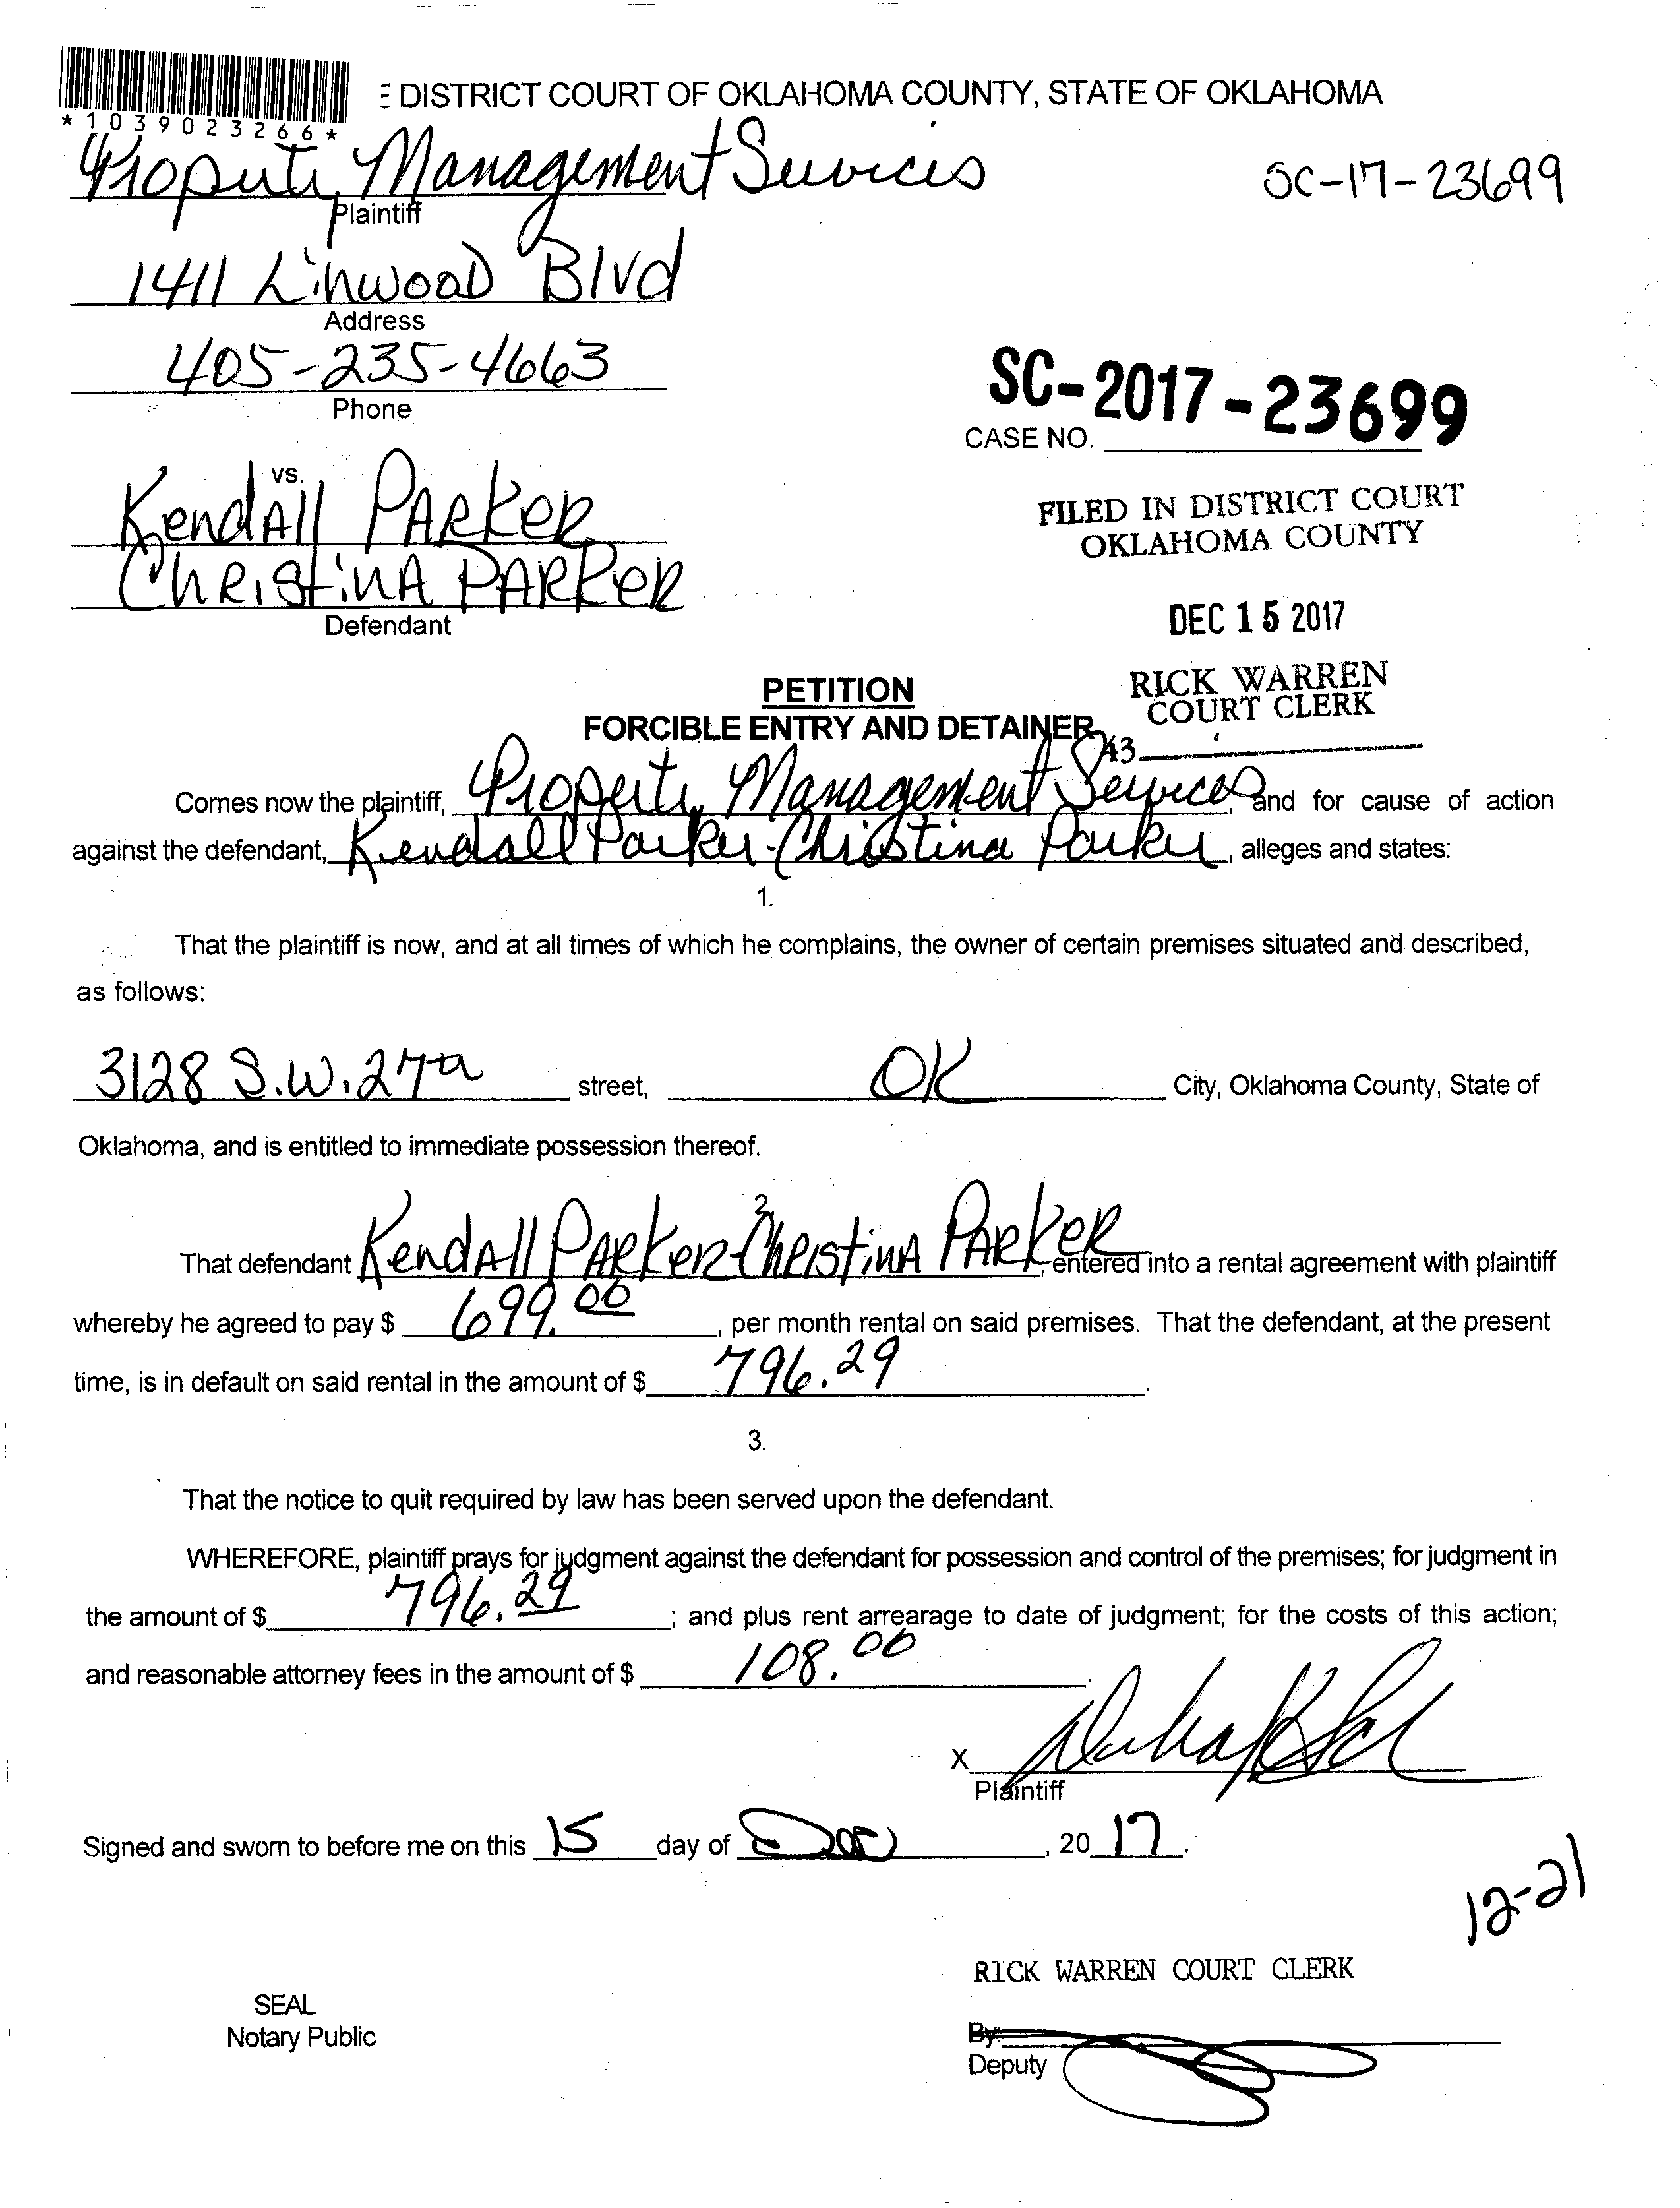 DISTRICT COURT OF OKLAHOMA COUNTY, STATE OF OKLAHOMA
*1039023266*
Property Management Services
SC-17-23699
Plaintiff
1411 Linwood Blvd
Address
405-235-4663
Phone
SC-2017-23699
CASE NO.
vs.
Kendall Parker
Christina Parker
Defendant
FILED IN DISTRICT COURT
OKLAHOMA COUNTY
DEC 15 2017
RICK WARREN
COURT CLERK
PETITION
FORCIBLE ENTRY AND DETAINER
43
Comes now the plaintiff, Property Management Services, and for cause of action
against the defendant, Kendall Parker-Christina Parker, alleges and states:
1.
That the plaintiff is now, and at all times of which he complains, the owner of certain premises situated and described,
as follows:
3128 S.W. 27th street, OK City, Oklahoma County, State of
Oklahoma, and is entitled to immediate possession thereof.
2.
That defendant Kendall Parker-Christina Parker, entered into a rental agreement with plaintiff
whereby he agreed to pay $ 699.00, per month rental on said premises. That the defendant, at the present
time, is in default on said rental in the amount of $ 796.29.
3.
That the notice to quit required by law has been served upon the defendant.
WHEREFORE, plaintiff prays for judgment against the defendant for possession and control of the premises; for judgment in
the amount of $ 796.29; and plus rent arrearage to date of judgment; for the costs of this action;
and reasonable attorney fees in the amount of $ 108.00.
X
Plaintiff
Signed and sworn to before me on this 15 day of Dec, 20 17.
12-21
RICK WARREN COURT CLERK
SEAL
Notary Public
By:
Deputy